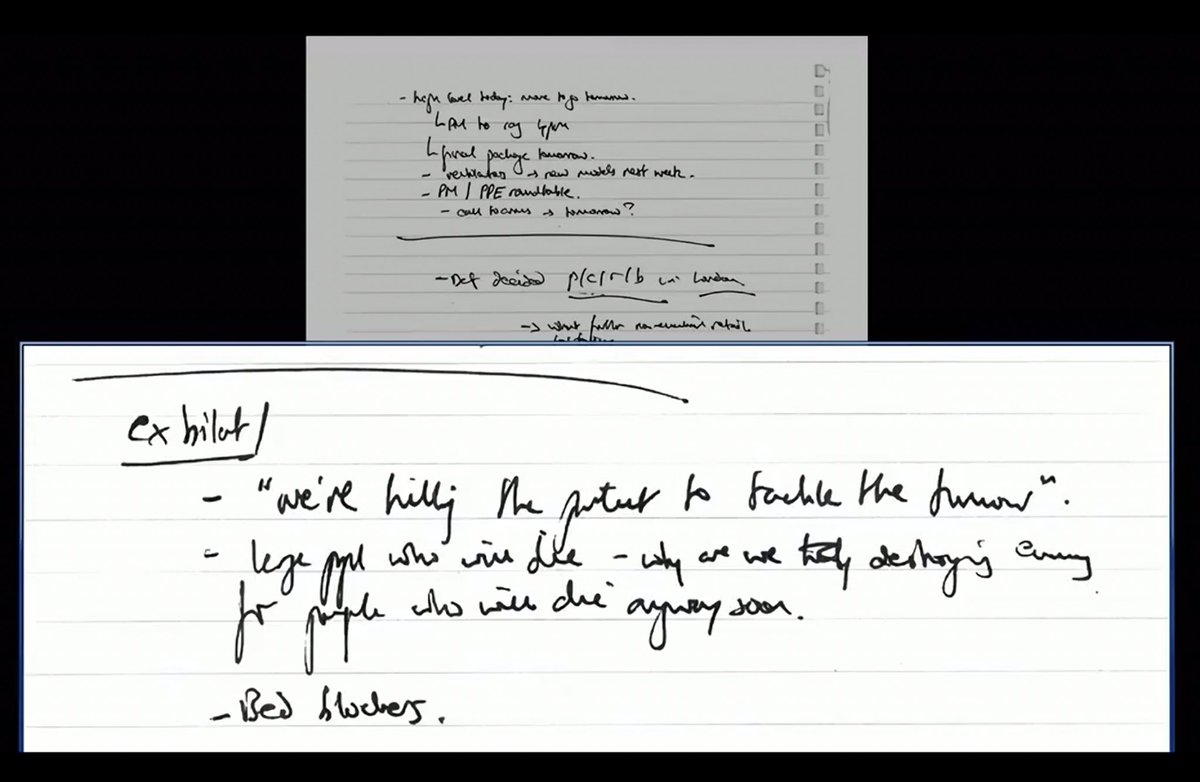 - high level today: more to go tomorrow.
↳ PM to 4pm
↳ final package tomorrow.
- ventilators → new models next week.
- PM / PPE roundtable.
- call to arms → tomorrow?
- Def decided p/c/r/b in London
→ what further non-essential retail
ex bilat/
- "we're killing the patient to tackle the tumour".
- large ppl who will die - why are we destroying economy
for people who will die anyway soon.
- Bed blockers.